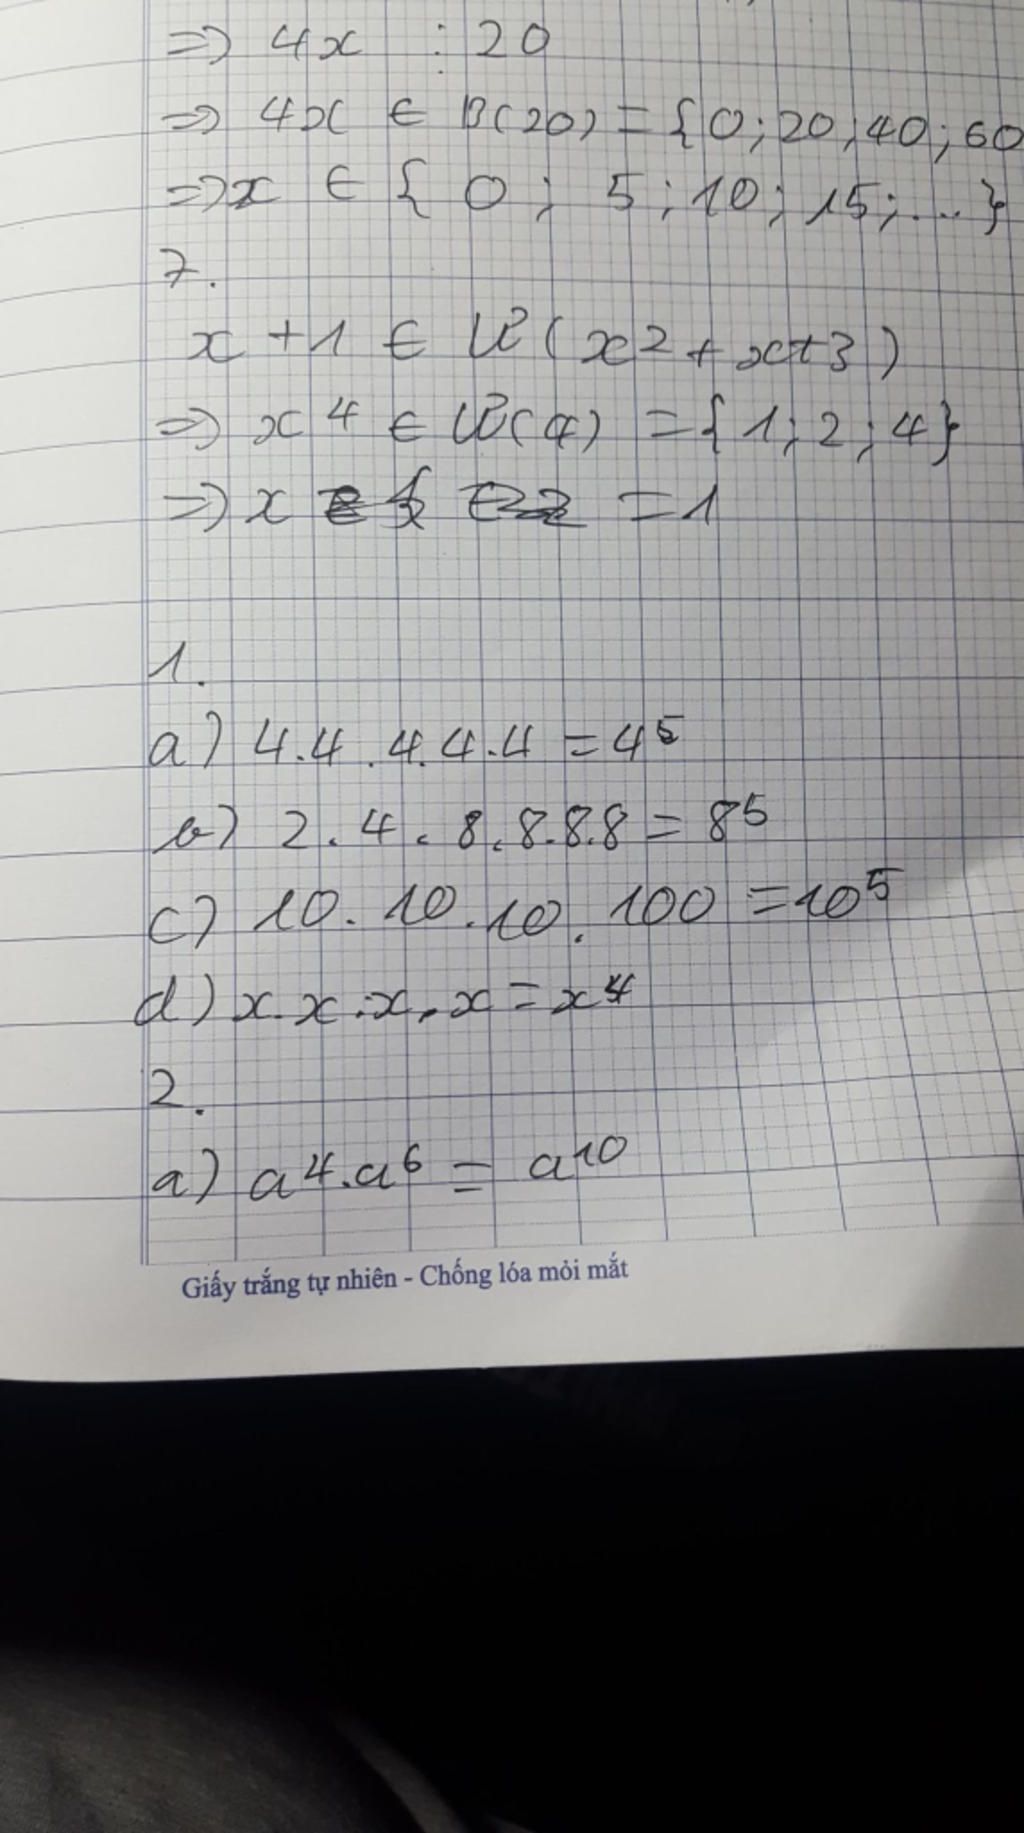 => 4x : 20
=> 4x ∈ B(20) = {0; 20; 40; 60
=> x ∈ { 0; 5; 10; 15; ... }
7.
x + 1 ∈ Ư(x2 + x + 3)
=> x 4 ∈ Ư(4) = {1; 2; 4}
=> x = 1
1.
a) 4.4.4.4.4 = 4⁵
b) 2.4.8.8.8.8 = 8⁵
c) 10.10.10.100 = 10⁵
d) x.x.x.x = x⁴
2.
a) a⁴.a⁶ = a¹⁰
Giấy trắng tự nhiên - Chống lóa mỏi mắt